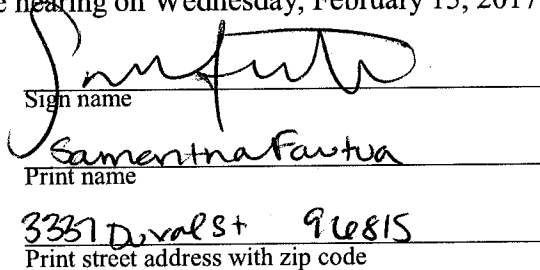 e hearing on Wednesday, February 15, 2017
Sign name
Samantha Fautua
Print name
3337 Duval St 96815
Print street address with zip code